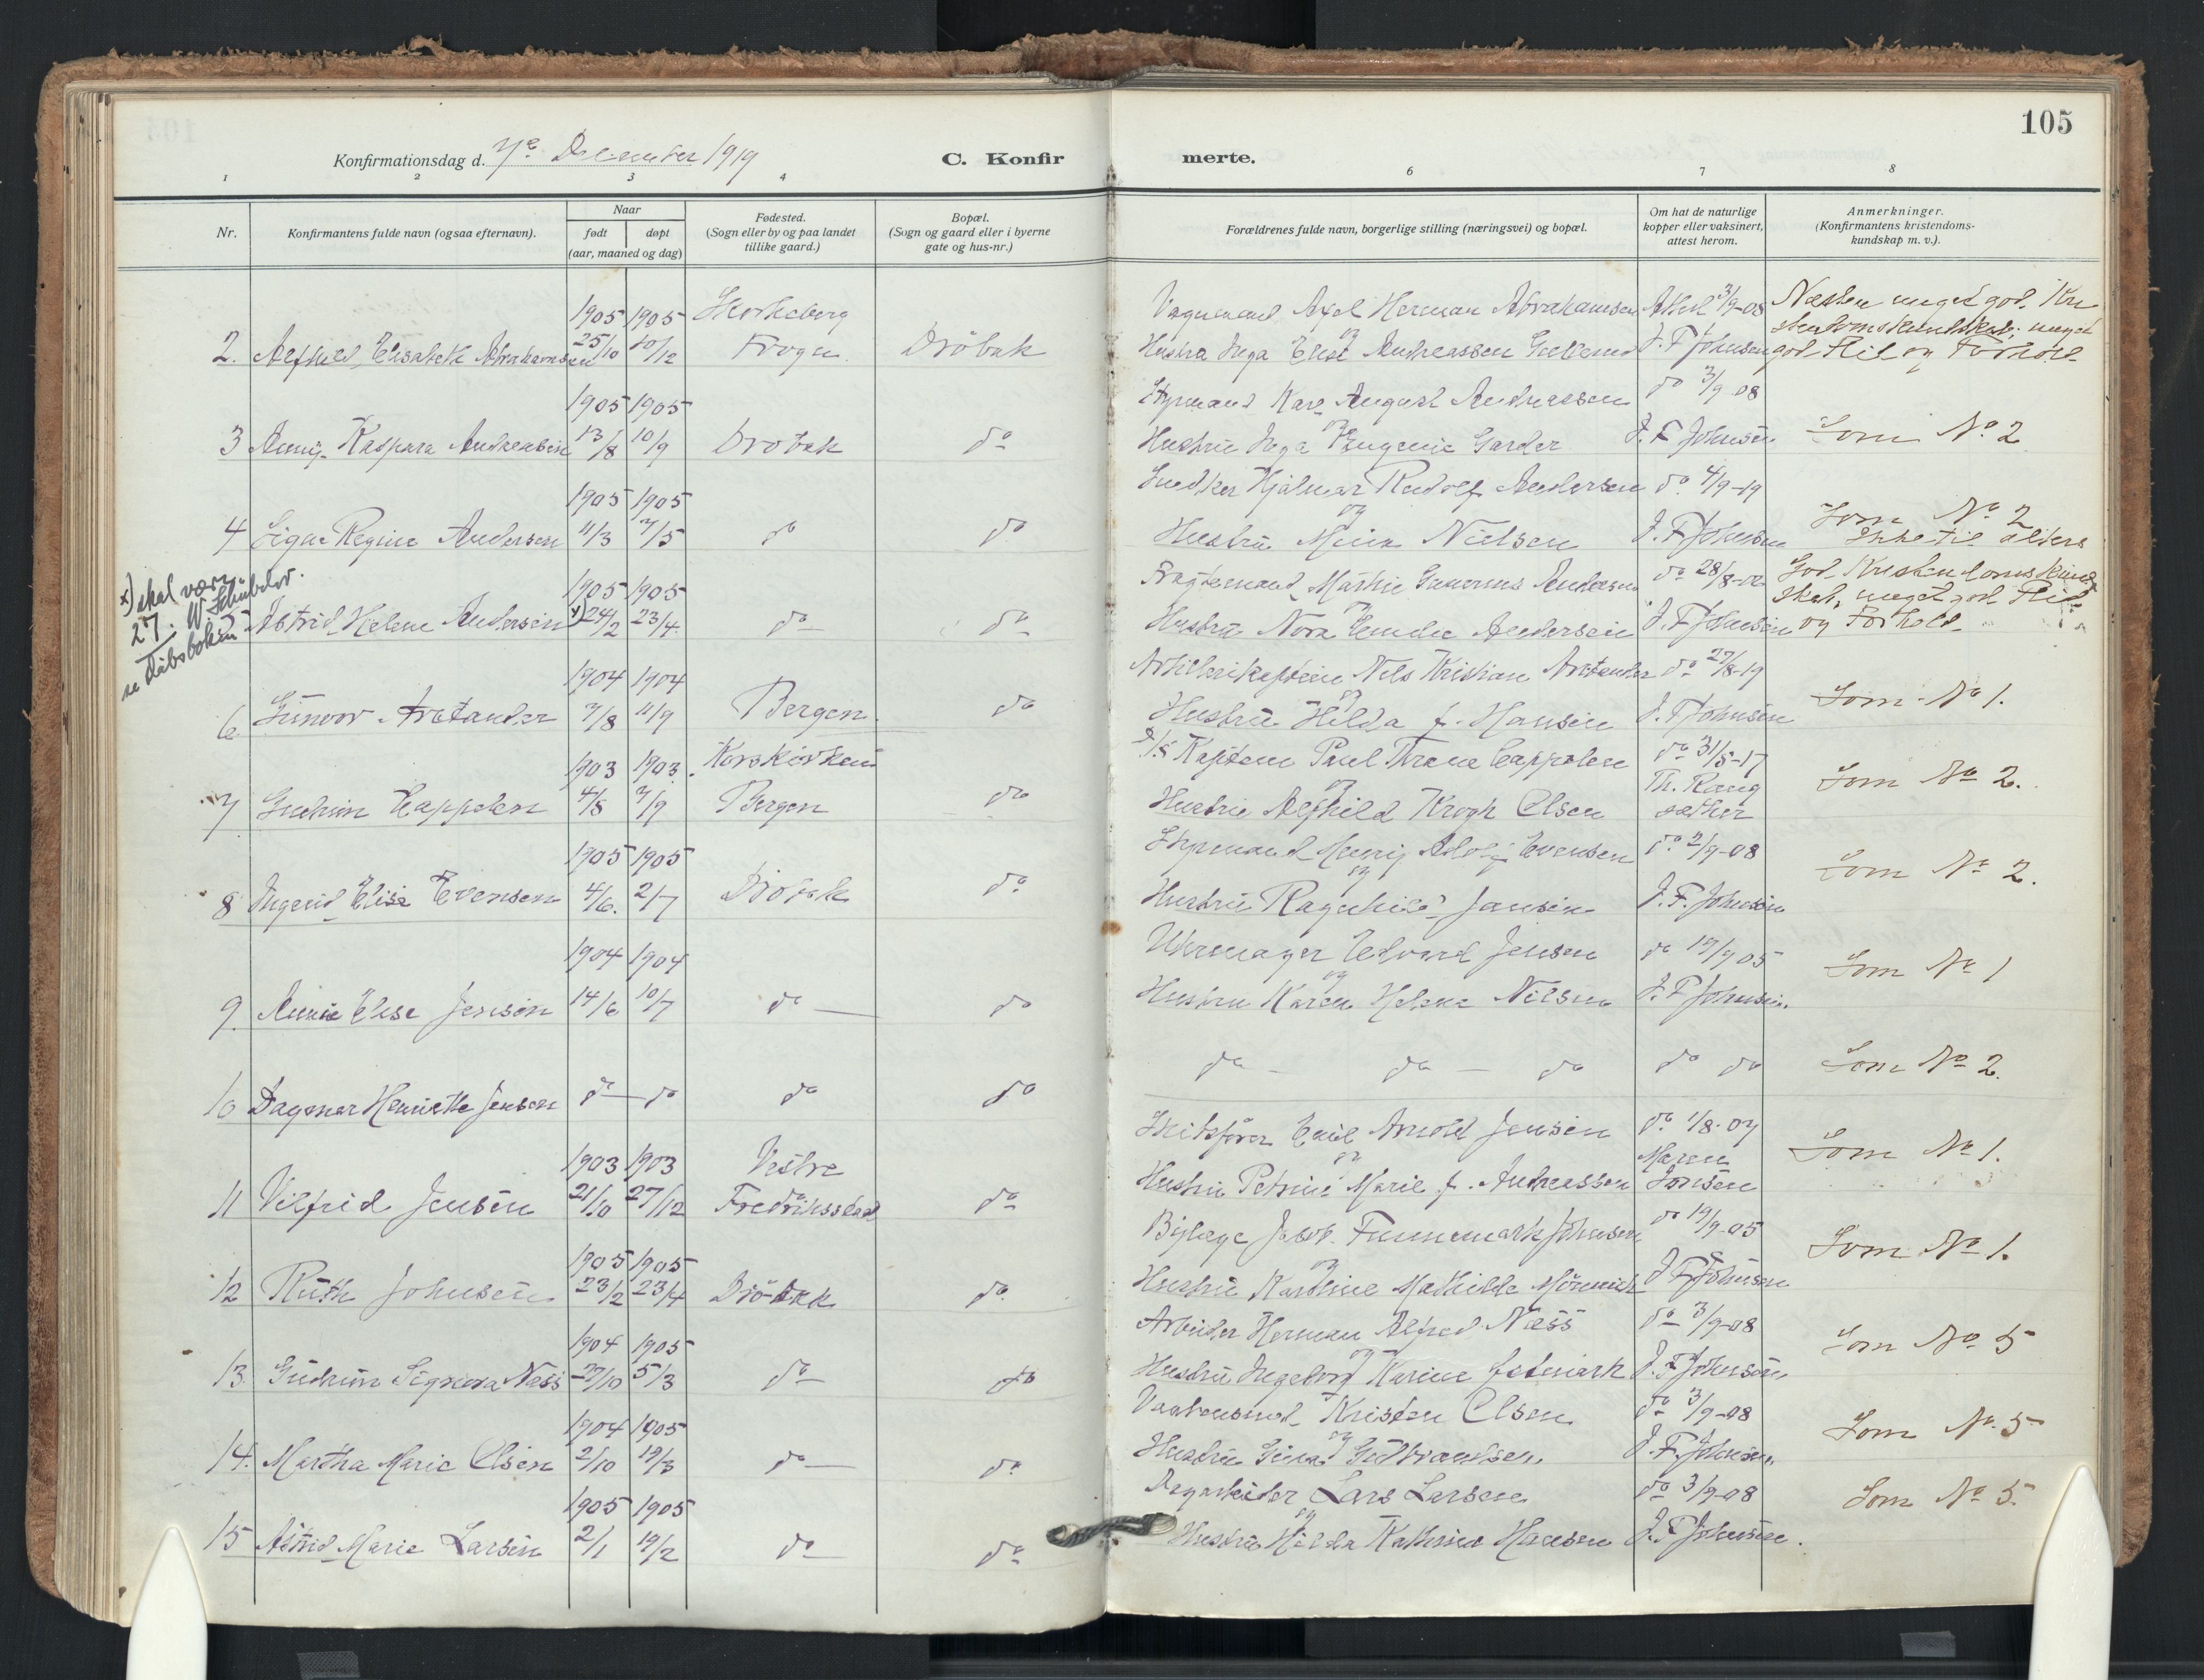 105
Konfirmationsdag d. 7de December 1919
C. Konfir
merte.
1 2 3 4 6 7 8
Nr.
Konfirmantens fulde navn (ogsaa efternavn).
Naar
født døpt
(aar, maaned og dag)
Fødested.
(Sogn eller by og paa landet
tillike gaard.)
Bopæl.
(Sogn og gaard eller i byerne
gate og hus-nr.)
Forældrenes fulde navn, borgerlige stilling (næringsvei) og bopæl.
Om hat de naturlige
kopper eller vaksinert,
attest herom.
Anmerkninger.
(Konfirmantens kristendoms-
kundskap m. v.).
1905 1905
2. Elisabeth Abrahamsen 25/10 10/12 Frogn Drøbak
Axel Herman Abrahamsen Attest 3/9-08
Hustru Inga Elise Andreassen J. F Johnsen
Næsten meget god Kri
stendomskundskab; meget
god Flid og Forhold
1905 1905
3 Kaspara Andreassen 13/8 10/9 Drøbak do
Styrmand Karl August Andreassen do 3/9-08
og
Hustru Inga Eugenie Garder J. F Johnsen
Som No 2
1905 1905
4 Regine Andersen 11/3 7/5 do do
Snedker Hjalmar Rudolf Andersen do 4/9-19
og
Hustru Nielsen J. F Johnsen
Som No 2
Ikke til alters
x) skal være
27.
se dåbsboken
1905 1905
5 Astrid Helene Andersen x) 24/2 23/4 do do
Andersen do 28/8-02
og
Hustru Nora Andersen J. F Johnsen
God Kristendomskund
skab, meget god Flid
og Forhold
1904 1904
6. Gunvor Arstander 7/8 11/9 Bergen do
Artillerikaptein Nils Kristian Arstander do 27/8-19
og
Hustru Hilda f. Hansen J. F Johnsen
Som No 1.
1903 1903 Korskirken
7 Gudrun Cappelen 4/8 7/9 Bergen do
Kaptein Paul Thrane Cappelen do 31/5-17
og
Hustru Krogh Olsen Th. Rang
sæther
Som No 2.
1905 1905
8 Ingerid Elise Evensen 4/6. 2/7 Drøbak do
Styrmand Adolf Evensen do 2/9-08
og
Hustru Ragnhild Jansen J. F. Johnsen
Som No 2.
1904 1904
9. Elise Jensen 14/6 10/7 do do
Uhrmager Edvard Jensen do 19/9 05
og
Hustru Karen Helene Nilsen J. F Johnsen.
Som No 1
10 Dagmar Henriette Jensen do do do do
do do do do do
Som No 2.
1903 1903 Vestre
11 Vilfrid Jensen 21/10 27/12 Fredriksstad do
Skibsfører Emil Arnold Jensen do 1/8-07
og
Hustru Petrine Marie f. Andreassen Maren
Jonsen
Som No 1.
1905 1905
12 Ruth Johnsen 23/2 23/4 Drøbak do
Bylæge Jacob Finnemark Johnsen do 19/9-05
og
Hustru Karoline Mathilde J F Johnsen
Som No 1.
1904 1905
13. Gudrun Næss 27/10 5/3 do do
Arbeider Herman Alfred Næss do 3/9-08
og
Hustru Ingeborg Karine J. F Johnsen
Som No 5
1904 1905
14. Martha Marie Olsen 2/10 19/3 do do
Kristen Olsen do 3/9-08
og
Hustru Gina Gulbrandsen J. F. Johnsen
Som No. 5
1905 1905
15 Astrid Marie Larsen 2/1 19/2 do do
Dagarbeider Lars Larsen do 3/9-08
og
Hustru Hilda Kathrine Hansen J. F Johnsen.
Som No 5.